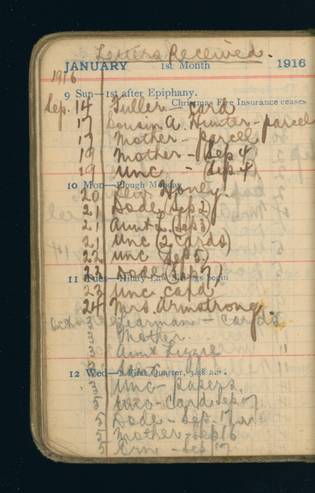 Letters Received.
JANUARY 1st Month 1916
1916
9 Sun—1st after Epiphany.
Christmas Fire Insurance ceases
Sep. 14 Fuller - Card
17 Cousin A. Hunter - parcel
17 Mother - parcel
19 Mother - (Sep 4)
19 Unc - (Sep. 4)
10 Mon—Plough Monday
20 Honey
21 Dode (Sep 2)
21 Aunt L. (Sep 3)
21 Unc (2 cards)
22 Unc (Sep 5)
23 Dode (Sep 7)
11 Tues—Hilary Law
23 Unc card
24 Mrs Armstrong.
Oct 3 Pearman - cards
3 Mother
3 Aunt Lizzie
12 Wed— First Quarter, 3.38 a.m.
5 Unc - papers.
5 Unc - card Sep 7
5 Dode - Sep. 17
5 Mother - Sep 16
5 Ern - Sep 17